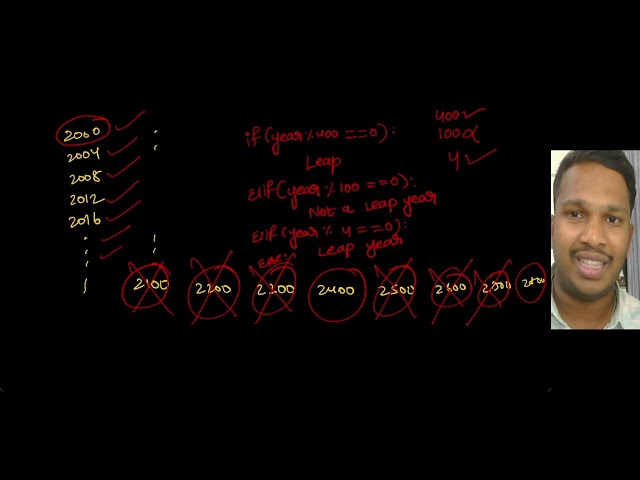 2000
2004
2008
2012
2016
if (year % 400 == 0):
Leap
Elif (year % 100 == 0):
Not a Leap year
Elif (year % 4 == 0):
Leap year
Else:
400
100
4
2100 2200 2300 2400 2500 2600 2700 2800